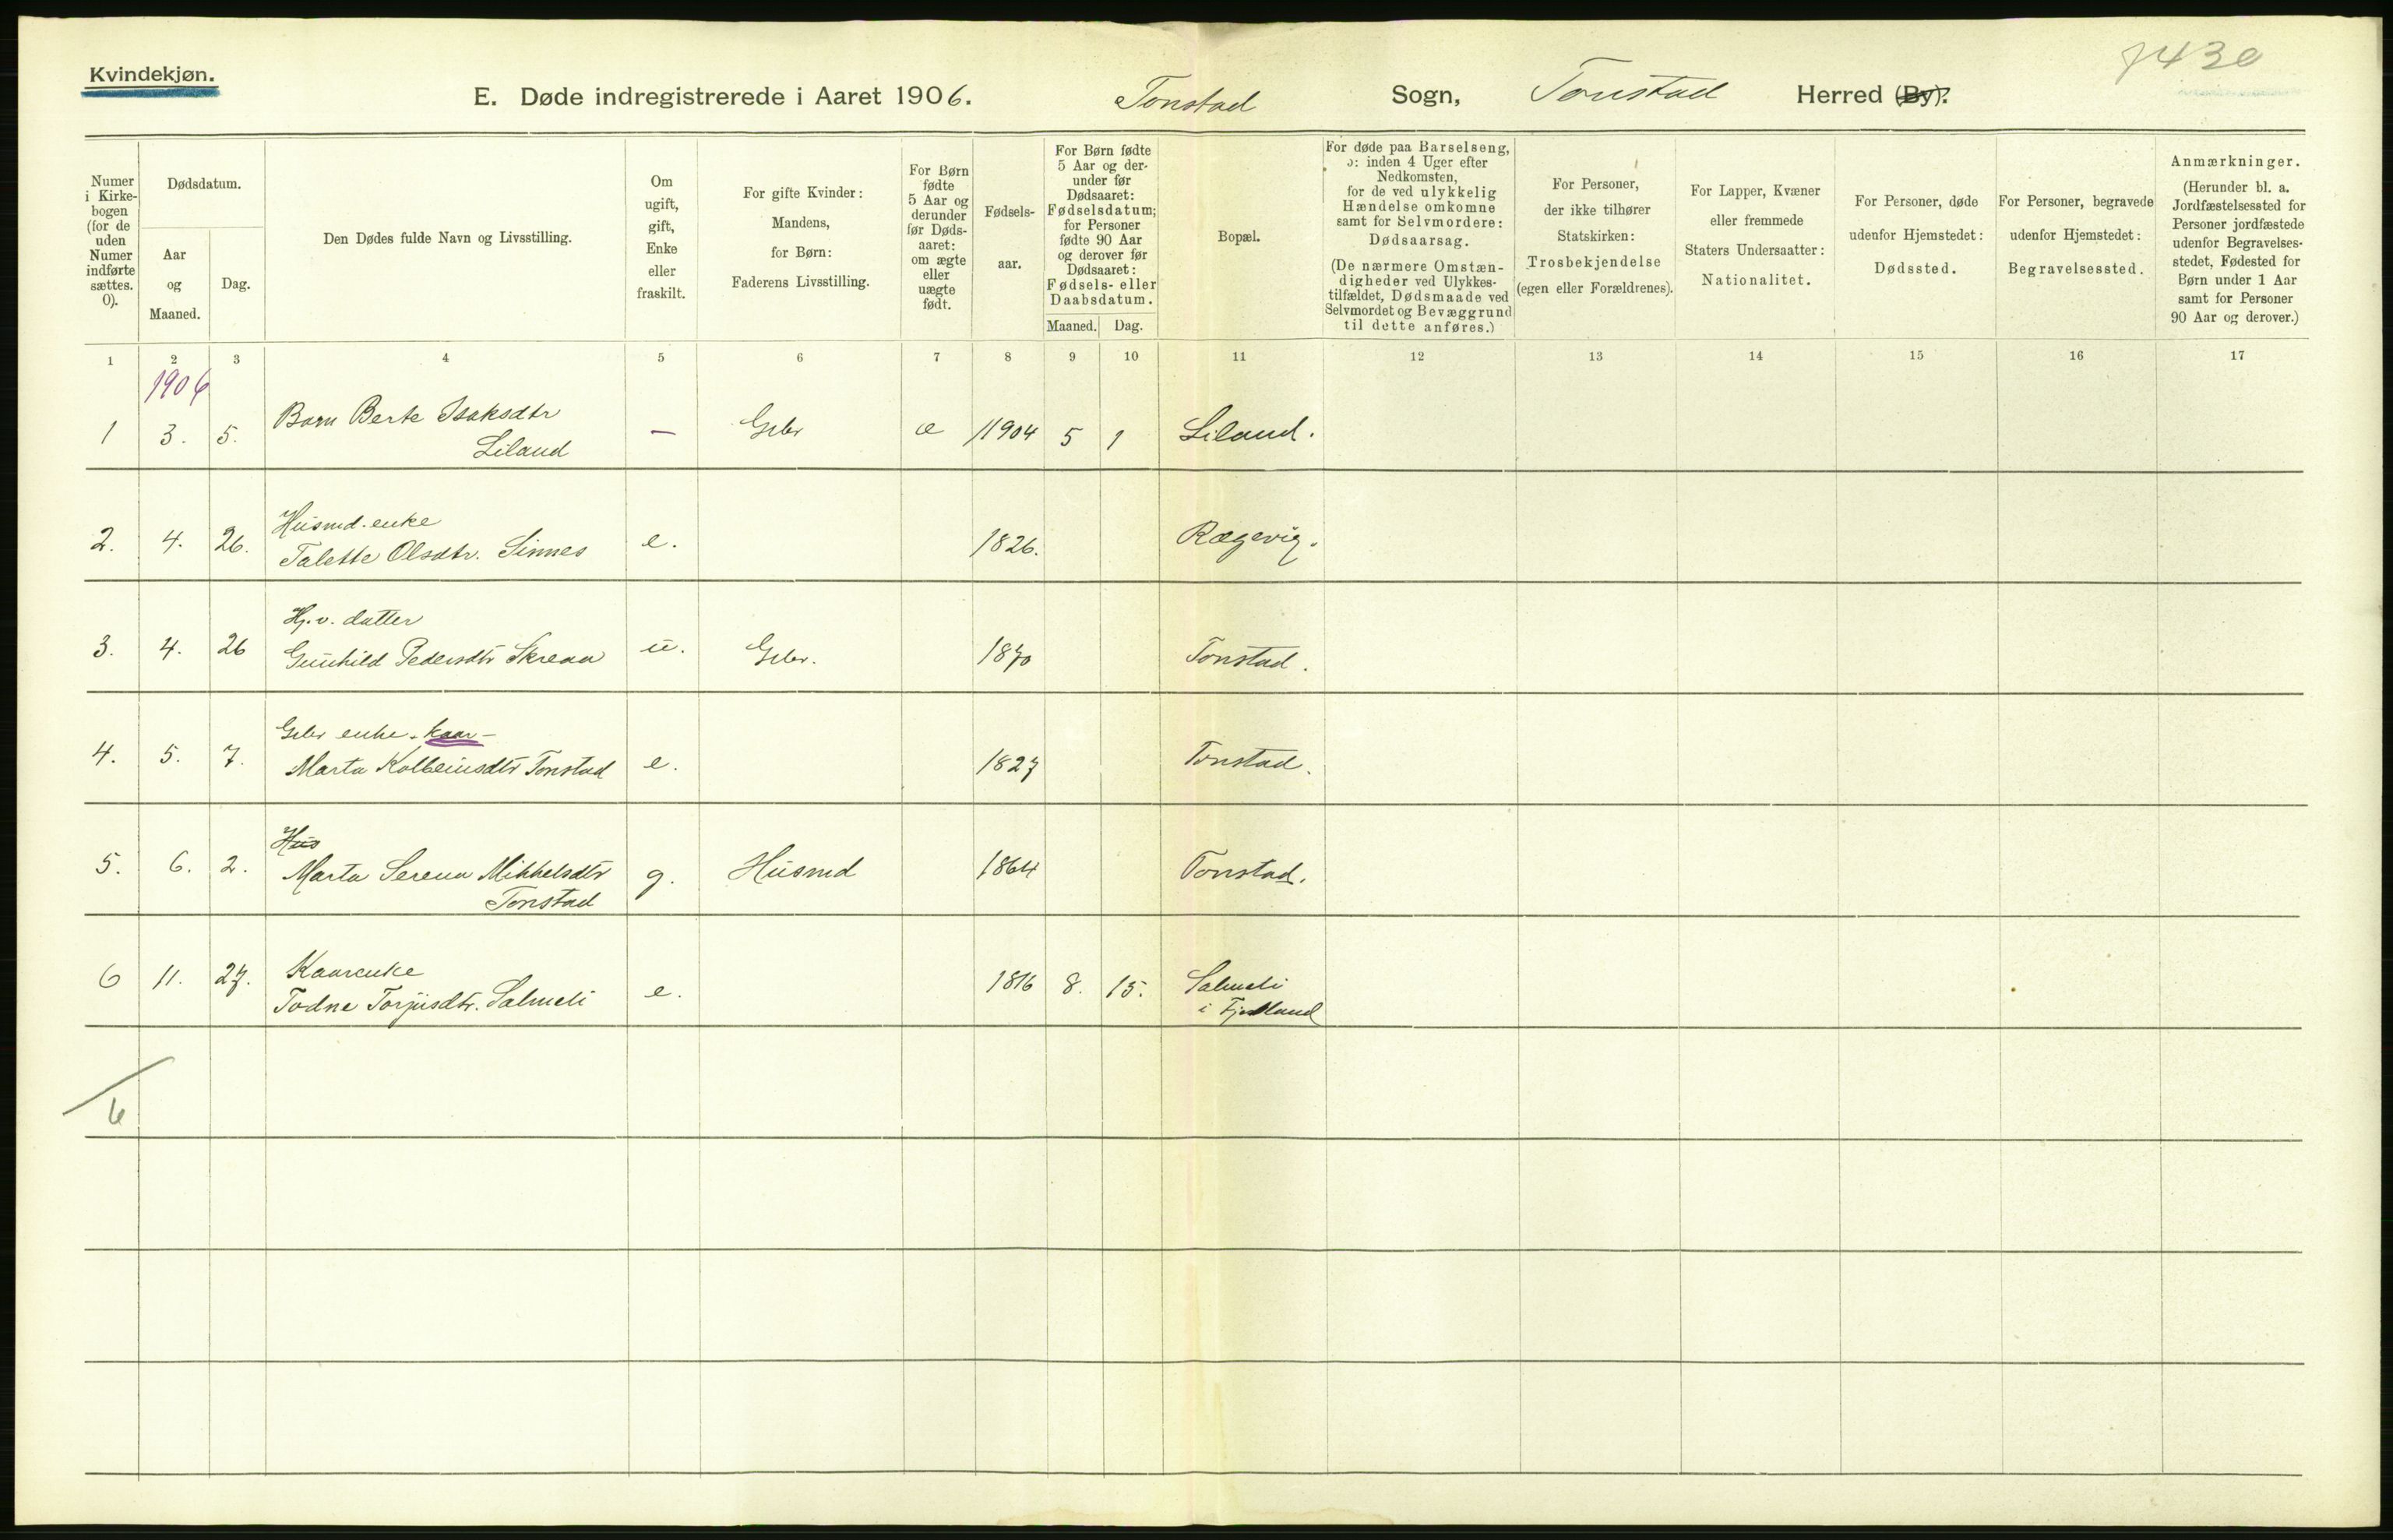 Kvindekjøn.
7430
E. Døde indregistrerede i Aaret 1906. Tonstad Sogn, Tonstad Herred (By).
Numer
i Kirke-
bogen
(for de
uden
Numer
indførte
sættes.
0).
Dødsdatum.
Aar
og
Maaned.
Dag.
Den Dødes fulde Navn og Livsstilling.
Om
ugift,
gift,
Enke
eller
fraskilt.
For gifte Kvinder:
Mandens,
for Børn:
Faderens Livsstilling.
For Børn
fødte
5 Aar og
derunder
før Døds-
aaret:
om ægte
eller
uægte
født.
Fødsels-
aar.
For Børn fødte
5 Aar og der-
under før
Dødsaaret:
Fødselsdatum;
for Personer
fødte 90 Aar
og derover før
Dødsaaret:
Fødsels- eller
Daabsdatum.
Maaned. Dag.
Bopæl.
For døde paa Barselseng,
ɔ: inden 4 Uger efter
Nedkomsten,
for de ved ulykkelig
Hændelse omkomne
samt for Selvmordere:
Dødsaarsag.
(De nærmere Omstæn-
digheder ved Ulykkes-
tilfældet, Dødsmaade ved
Selvmordet og Bevæggrund
til dette anføres.)
For Personer,
der ikke tilhører
Statskirken:
Trosbekjendelse
(egen eller Forældrenes).
For Lapper, Kvæner
eller fremmede
Staters Undersaatter:
Nationalitet.
For Personer, døde
udenfor Hjemstedet:
Dødssted.
For Personer, begravede
udenfor Hjemstedet:
Begravelsessted.
Anmærkninger.
(Herunder bl. a.
Jordfæstelsessted for
Personer jordfæstede
udenfor Begravelses-
stedet, Fødested for
Børn under 1 Aar
samt for Personer
90 Aar og derover.)
1 2 3 4 5 6 7 8 9 10 11 12 13 14 15 16 17
1906
Barn Berte Isaksdtr
1 3. 5. Liland — Gbr æ 1904 5 1 Liland.
Husmd. enke
2. 4. 26. Talette Olsdtr. Sinnes e. 1826. Rægevig.
Hj. v. datter
3. 4. 26 Gunhild Pedersdtr Skreaa u. Gbr. 1870 Tonstad.
Gbr enke - kaar -
4. 5. 7. Marta Kolbeinsdtr Tonstad e. 1827 Tonstad.
Hus
5. 6. 2. Marta Serena Mikkelsdtr g. Husmd 1864 Tonstad.
Tonstad
Kaarenke
6 11. 27. Todne Torjusdtr. Salmeli e. 1816 8. 15. Salmeli
i Fjotland
6